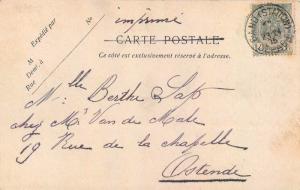 imprimé
N°
Expédié par
CARTE POSTALE
Ce côté est exclusivement réservé à l'adresse.
M
Demt à
Rue
Mlle Berthe
chez Mr Van de Male
19 Rue de la chapelle
Ostende